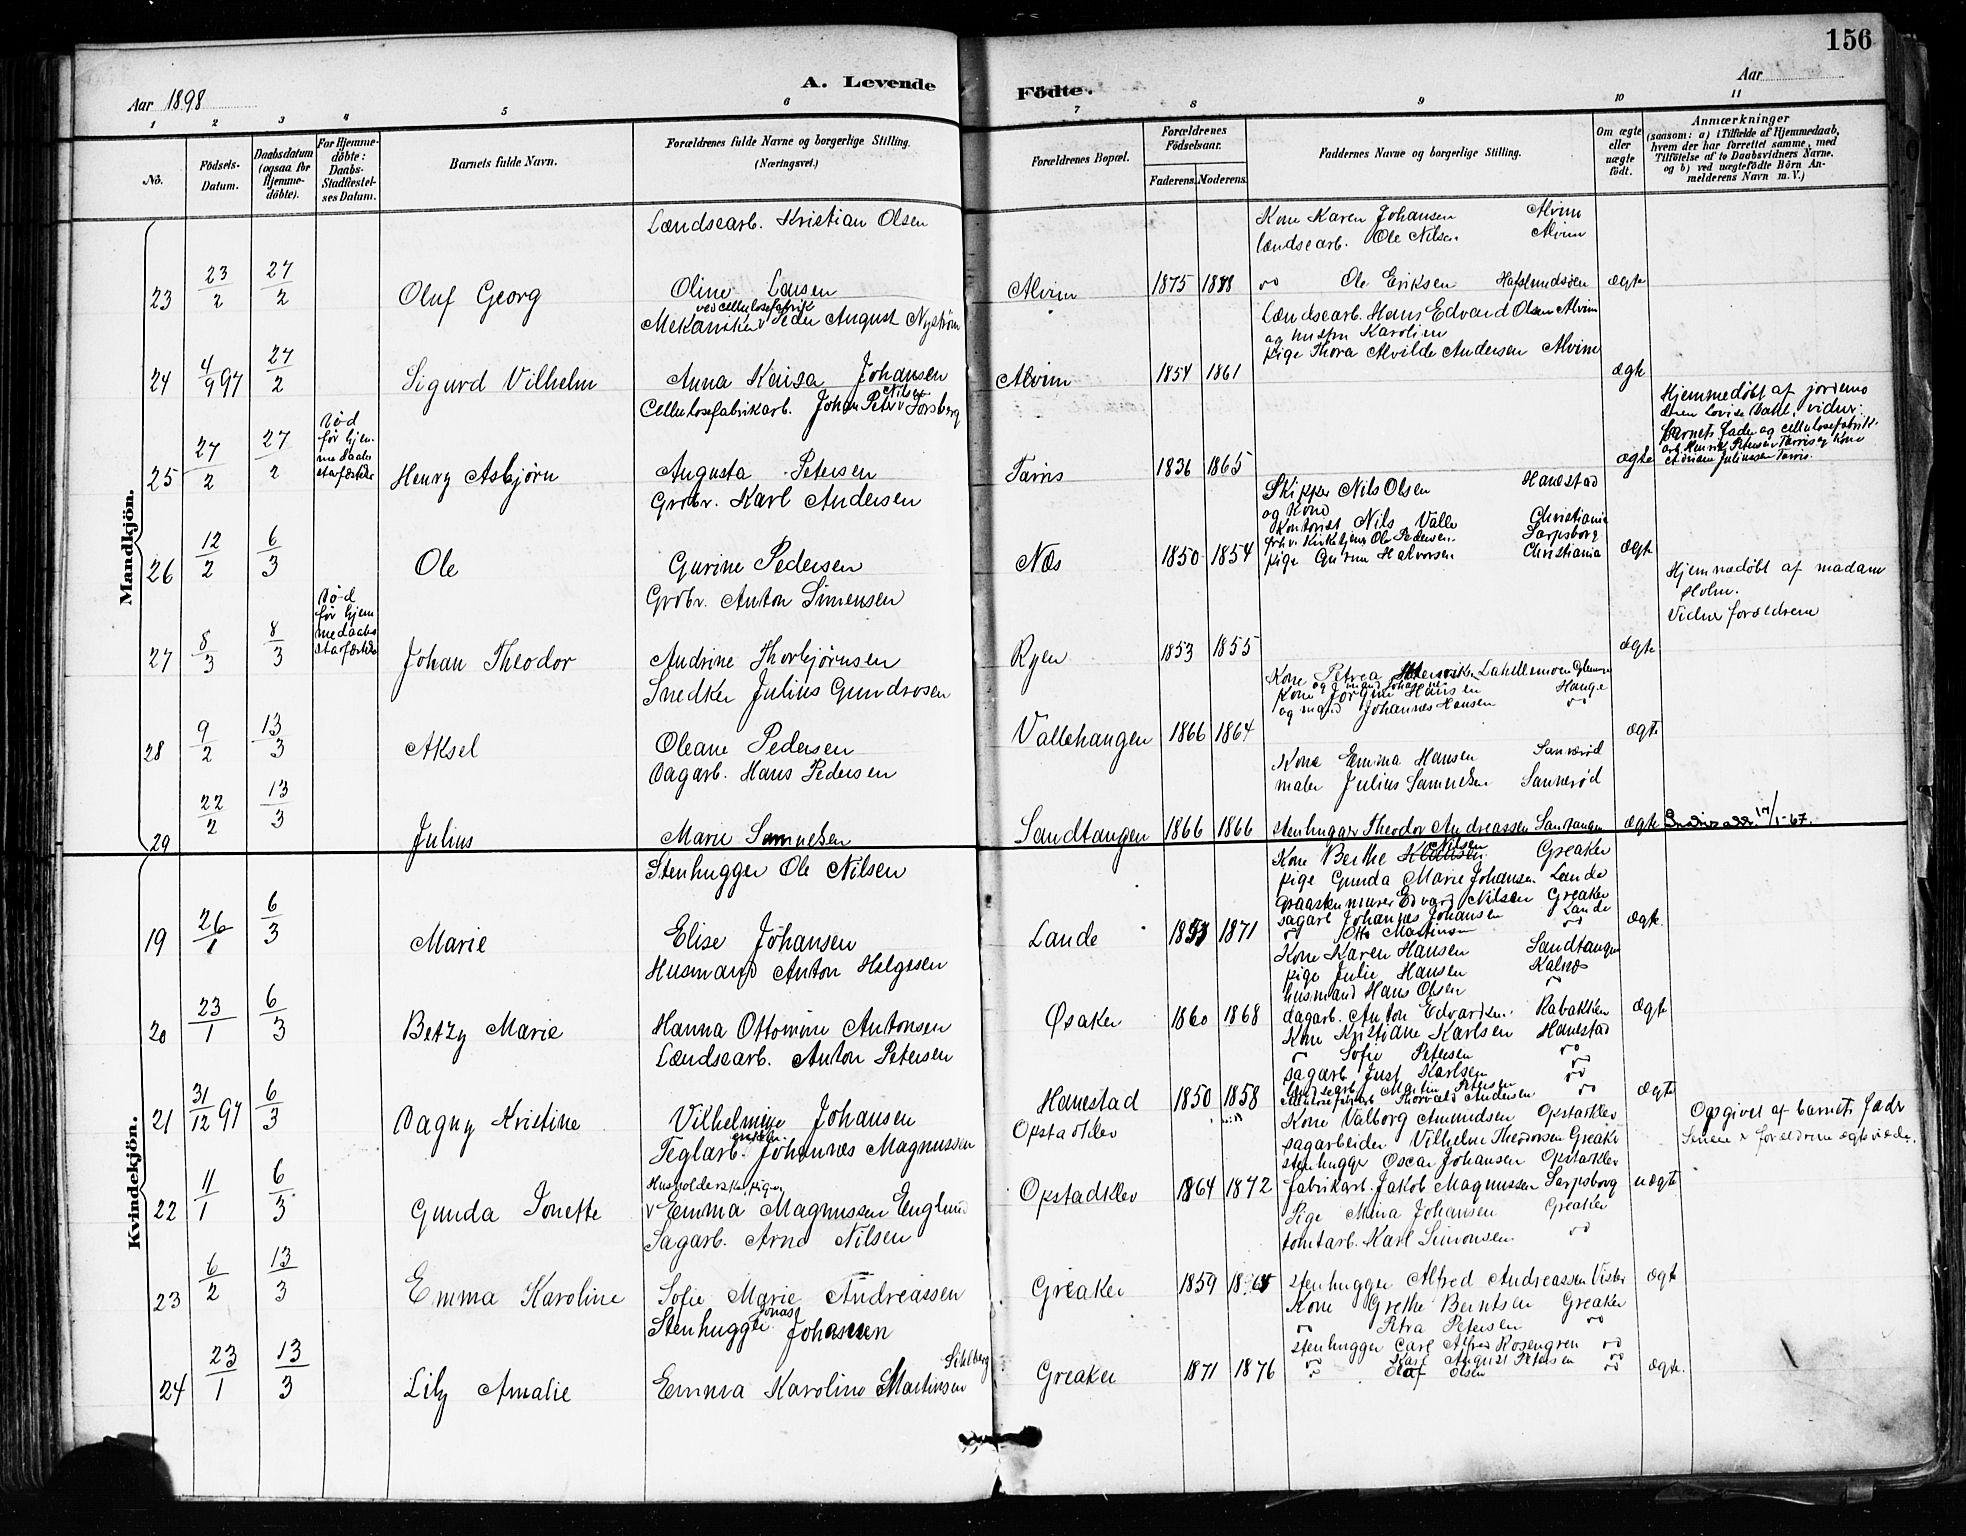 156
A. Levende
Födte.
Aar 1898
Aar
1 2 3 4 5 6 7 8 9 10 11
No.
Födsels-Datum.
Daabsdatum (ogsaa for Hjemme-döbte).
For Hjemme-döbte: Daabs-Stadfestel-ses Datum.
Barnets fulde Navn.
Forældrenes fulde Navne og borgerlige Stilling. (Næringsvei.)
Forældrenes Bopæl.
Forældrenes Födselsaar.
Faderens. Moderens.
Faddernes Navne og borgerlige Stilling.
Om ægte eller uægte födt.
Anmærkninger
(saasom: a) i Tilfælde af Hjemmedaab, hvem der har forrettet samme, med Tilföielse af to Daabsvidners Navne. og b) ved uægtefödte Börn An-melderens Navn m. V.)
Mandkjön.
Lændsearb. Kristian Olsen
Kone Karen Johansen Alvim
lændsearb. Ole Nilsen Alvim
23 23/2 27/2 Oluf Georg Oline Larsen Alvim 1875 1878 do Ole Eriksen Hafslundsöen ægte
ved cellulosefabrik
Mekaniker Peder August Nyström
Lændsearb. Hans Edvard Olsen Alvim
og hustru Karoline
pige Thora Alvilde Andersen Alvim
24 4/9 97 27/2 Sigurd Vilhelm Anna Kaisa Johansen Alvim 1854 1861 ægte
Cellulosefabrikarb. Johan Peter Nilsen Forsberg
Död før hjem-medaabs stadfæstelse
25 27/2 27/2 Henry Asbjørn Augusta Petersen Tarris 1836 1865 ægte
Hjemmedöbt af jordemo
deren Lovise Dahl, vidner:
barnets fader og cellulosefabrik
arb. Henrik Petersen Tarris og Kone
Adriane Julinesen Tarris.
Grdbr. Karl Andersen
Skipper Nils Olsen Hanestad
og Kone
Kontorist Nils Valle Christiania
frhv. Kirketjener Ole Pedersen Sarpsborg
26 12/2 6/3 Ole Gurine Pedersen Næs 1850 1854 pige Gurun Halvorsen Christiania ægte
Grdbr. Anton Simensen
Død før hjem medaabs stadfæstelse
27 8/3 8/3 Johan Theodor Andrine Thorbjørnsen Ryen 1853 1855 ægte
Hjemmedöbt af madam
Holm.
Vidner forældrene
Snedker Julius Gundrosen
Kone Petrea Lahellemoen Glemmen
og mand Johannes
Kone Jørgine Hansen Hauge
og mand Johannes Hansen do
28 9/2 13/3 Aksel Oleane Pedersen Vallehaugen 1866 1864 ægte
Dagarb. Hans Pedersen
Kone Emma Hansen Sannerød
maler Julius Samuelsen Sannerød
29 22/2 13/3 Julius Marie Samuelsen Sandtangen 1866 1866 stenhugger Theodor Andreassen Santangen ægte 17/1-67.
Kvindekjön.
Stenhugger Ole Nilsen
Kone Berthe Nilsen Greaker
pige Gunda Marie Johansen Lande
graastenmurer Edvard Nilsen Greaker
sagarb Johannes Johansen Lande
19 26/1 6/3 Marie Elise Johansen Lande 1853 1871 do Otto Martinsen do ægte
Husmand Anton Helgesen
Kone Karen Hansen Sandtangen
pige Julie Hansen Kalnæs
husmand Hans Olsen
20 23/1 6/3 Betzy Marie Hanna Ottomine Antonsen Øsaker 1860 1868 dagarb. Anton Edvardsen Rabakken ægte
Lændsearb. Anton Petersen
Kone Kristiane Karlsen Hanestad
do Sofie Petersen do
sagarb. Just Karlsen do
lændsearb. Martin Petersen do
21 31/12 97 6/3 Dagny Kristine Vilhelmine Johansen Hanestad 1850 1858 cellulosefabrikarb Thorvald Andersen ægte
Teglarb. Johannes Magnussen Opstadklev
Kone Valborg Amundsen Opstadklev
sagarbeider Vilhelm Theodorsen Greaker
stenhugger Oscar Johansen Opstadklev
Opgivet af barnets fader
Senere x forældrene ægteviede.
Husholderske pige
22 11/1 6/3 Gunda Jonette Emma Magnussen Englund Opstadklev 1864 1872 fabrikarb. Jakob Magnussen Sarpsborg uægte
Sagarb. Arne Nilsen
Pige Mina Johansen Greaker
tomtarb. Karl Simonsen do
23 6/2 13/3 Emma Karoline Sofie Marie Andreassen Greaker 1859 1865 stenhugger Alfred Andreassen Vister ægte
Stenhugger Jonas Johansen
Kone Grethe Berntsen Greaker
do Petra Petersen do
stenhugger Carl Alfred Rosengren do
do Karl August Petersen do
24 23/1 13/3 Lily Amalie Emma Karoline Martinsen Sihlberg Greaker 1871 1876 do Olaf Olsen do ægte.